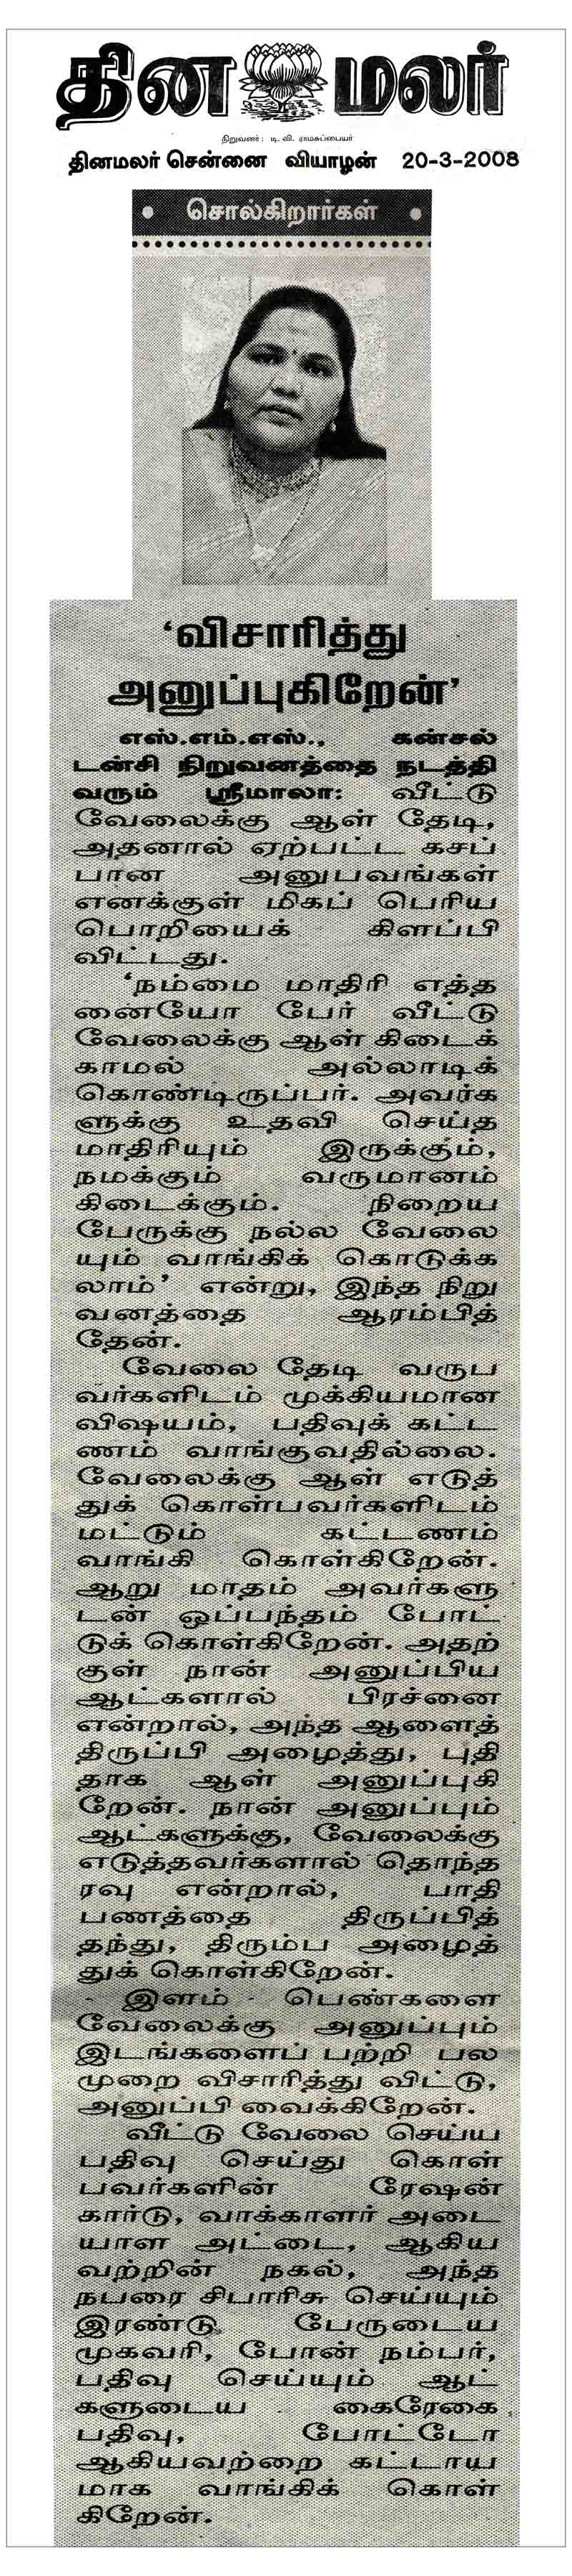 தின மலர்
நிறுவனர் : டி. வி. ராமசுப்பையர்
தினமலர் சென்னை வியாழன் 20-3-2008
• சொல்கிறார்கள் •
‘விசாரித்து
அனுப்புகிறேன்’
எஸ்.எம்.எஸ்., கன்சல்
டன்சி நிறுவனத்தை நடத்தி
வரும் ஸ்ரீமாலா: வீட்டு
வேலைக்கு ஆள் தேடி,
அதனால் ஏற்பட்ட கசப்
பான அனுபவங்கள்
எனக்குள் மிகப் பெரிய
பொறியைக் கிளப்பி
விட்டது.
‘நம்மை மாதிரி எத்த
னையோ பேர் வீட்டு
வேலைக்கு ஆள் கிடைக்
காமல் அல்லாடிக்
கொண்டிருப்பர். அவர்க
ளுக்கு உதவி செய்த
மாதிரியும் இருக்கும்,
நமக்கும் வருமானம்
கிடைக்கும். நிறைய
பேருக்கு நல்ல வேலை
யும் வாங்கிக் கொடுக்க
லாம்’ என்று, இந்த நிறு
வனத்தை ஆரம்பித்
தேன்.
வேலை தேடி வருப
வர்களிடம் முக்கியமான
விஷயம், பதிவுக் கட்ட
ணம் வாங்குவதில்லை.
வேலைக்கு ஆள் எடுத்
துக் கொள்பவர்களிடம்
மட்டும் கட்டணம்
வாங்கி கொள்கிறேன்.
ஆறு மாதம் அவர்களு
டன் ஒப்பந்தம் போட்
டுக் கொள்கிறேன். அதற்
குள் நான் அனுப்பிய
ஆட்களால் பிரச்னை
என்றால், அந்த ஆளைத்
திருப்பி அழைத்து, புதி
தாக ஆள் அனுப்புகி
றேன். நான் அனுப்பும்
ஆட்களுக்கு, வேலைக்கு
எடுத்தவர்களால் தொந்த
ரவு என்றால், பாதி
பணத்தை திருப்பித்
தந்து, திரும்ப அழைத்
துக் கொள்கிறேன்.
இளம் பெண்களை
வேலைக்கு அனுப்பும்
இடங்களைப் பற்றி பல
முறை விசாரித்து விட்டு,
அனுப்பி வைக்கிறேன்.
வீட்டு வேலை செய்ய
பதிவு செய்து கொள்
பவர்களின் ரேஷன்
கார்டு, வாக்காளர் அடை
யாள அட்டை, ஆகிய
வற்றின் நகல், அந்த
நபரை சிபாரிசு செய்யும்
இரண்டு பேருடைய
முகவரி, போன் நம்பர்,
பதிவு செய்யும் ஆட்
களுடைய கைரேகை
பதிவு, போட்டோ
ஆகியவற்றை கட்டாய
மாக வாங்கிக் கொள்
கிறேன்.